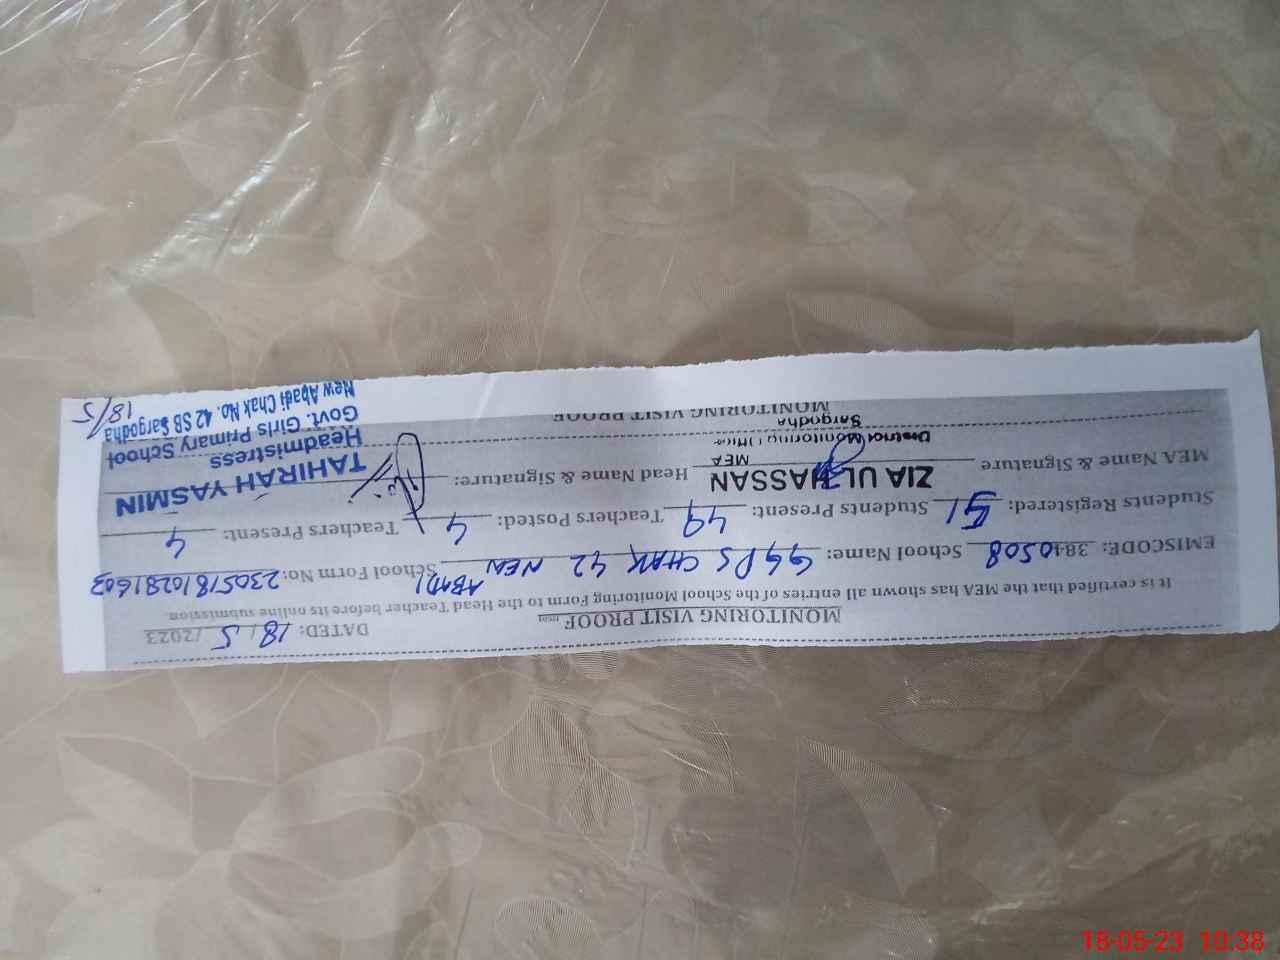 MONITORING VISIT PROOF
DATED: 18/5/2023
It is certified that the MEA has shown all entries of the School Monitoring Form to the Head Teacher before its online submission.
EMISCODE: 38410508 School Name: GGPS CHAK 42 NEW ABADI School Form No: 
Students Registered: 51 Students Present: 49 Teachers Posted: 4 Teachers Present: 4
MEA Name & Signature ZIA UL HASSAN Head Name & Signature:
MEA
District Monitoring Office
Sargodha
TAHIRAH YASMIN
Headmistress
Govt. Girls Primary School
New Abadi Chak No. 42 SB Sargodha
18/5
MONITORING VISIT PROOF
18-05-23 10:38